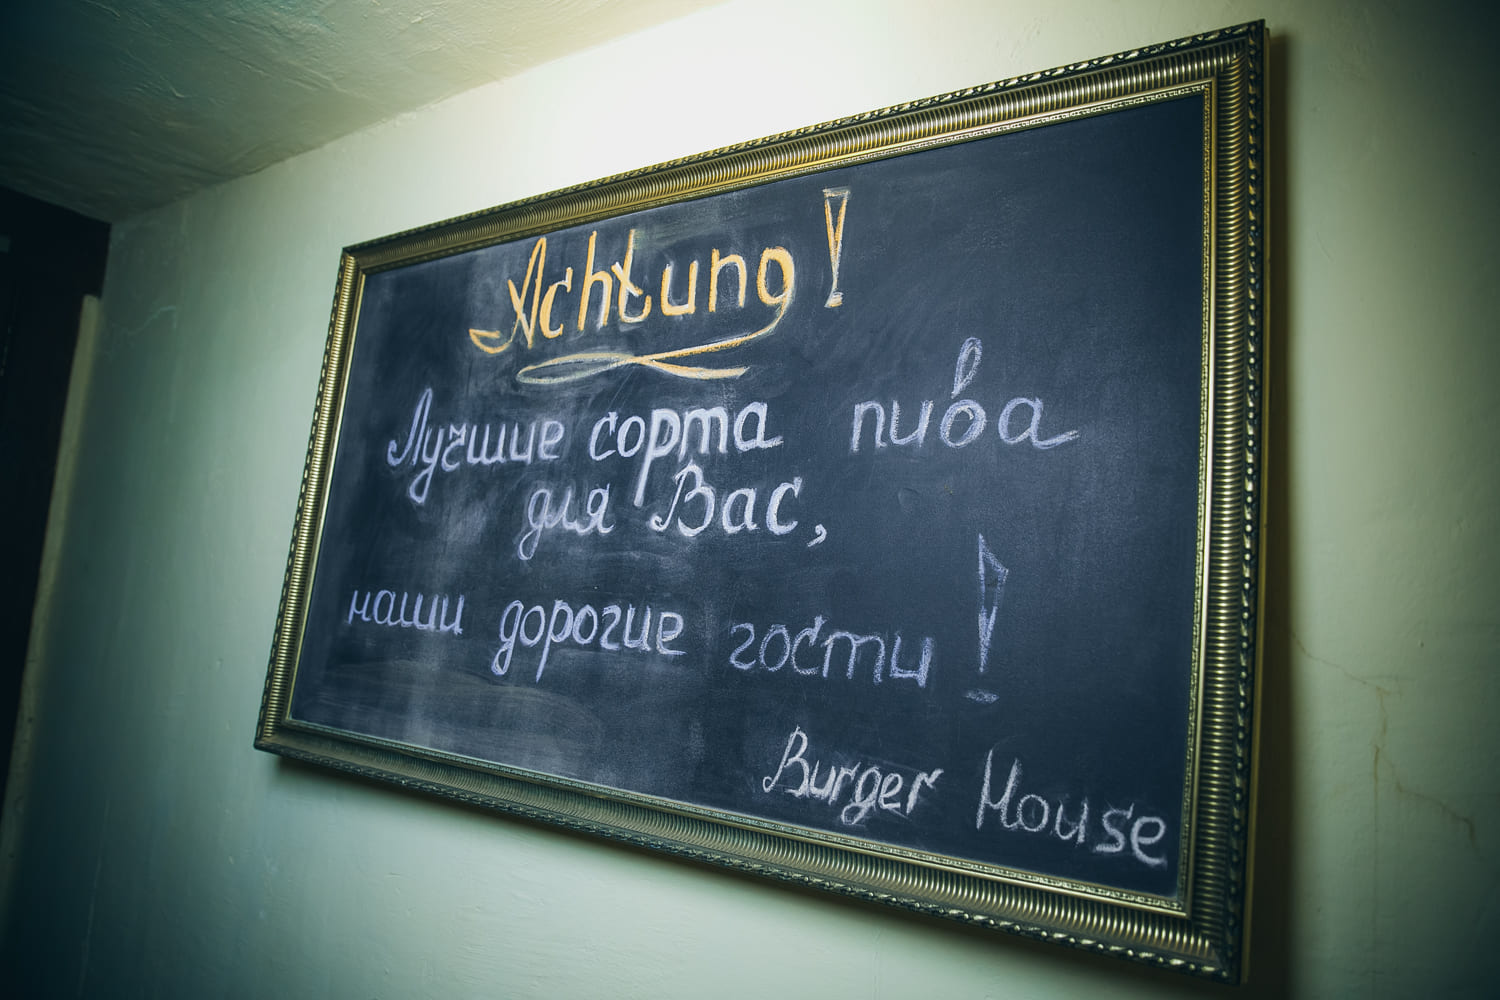 Achtung!
Лучшие сорта пива
для Вас,
наши дорогие гости!
Burger House